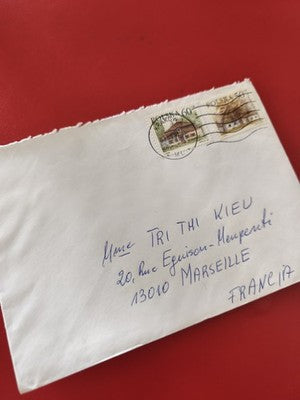 POLSKA 60
POLSKA
Mme TRI THI KIEU
20, Rue
13010 MARSEILLE
FRANCJA